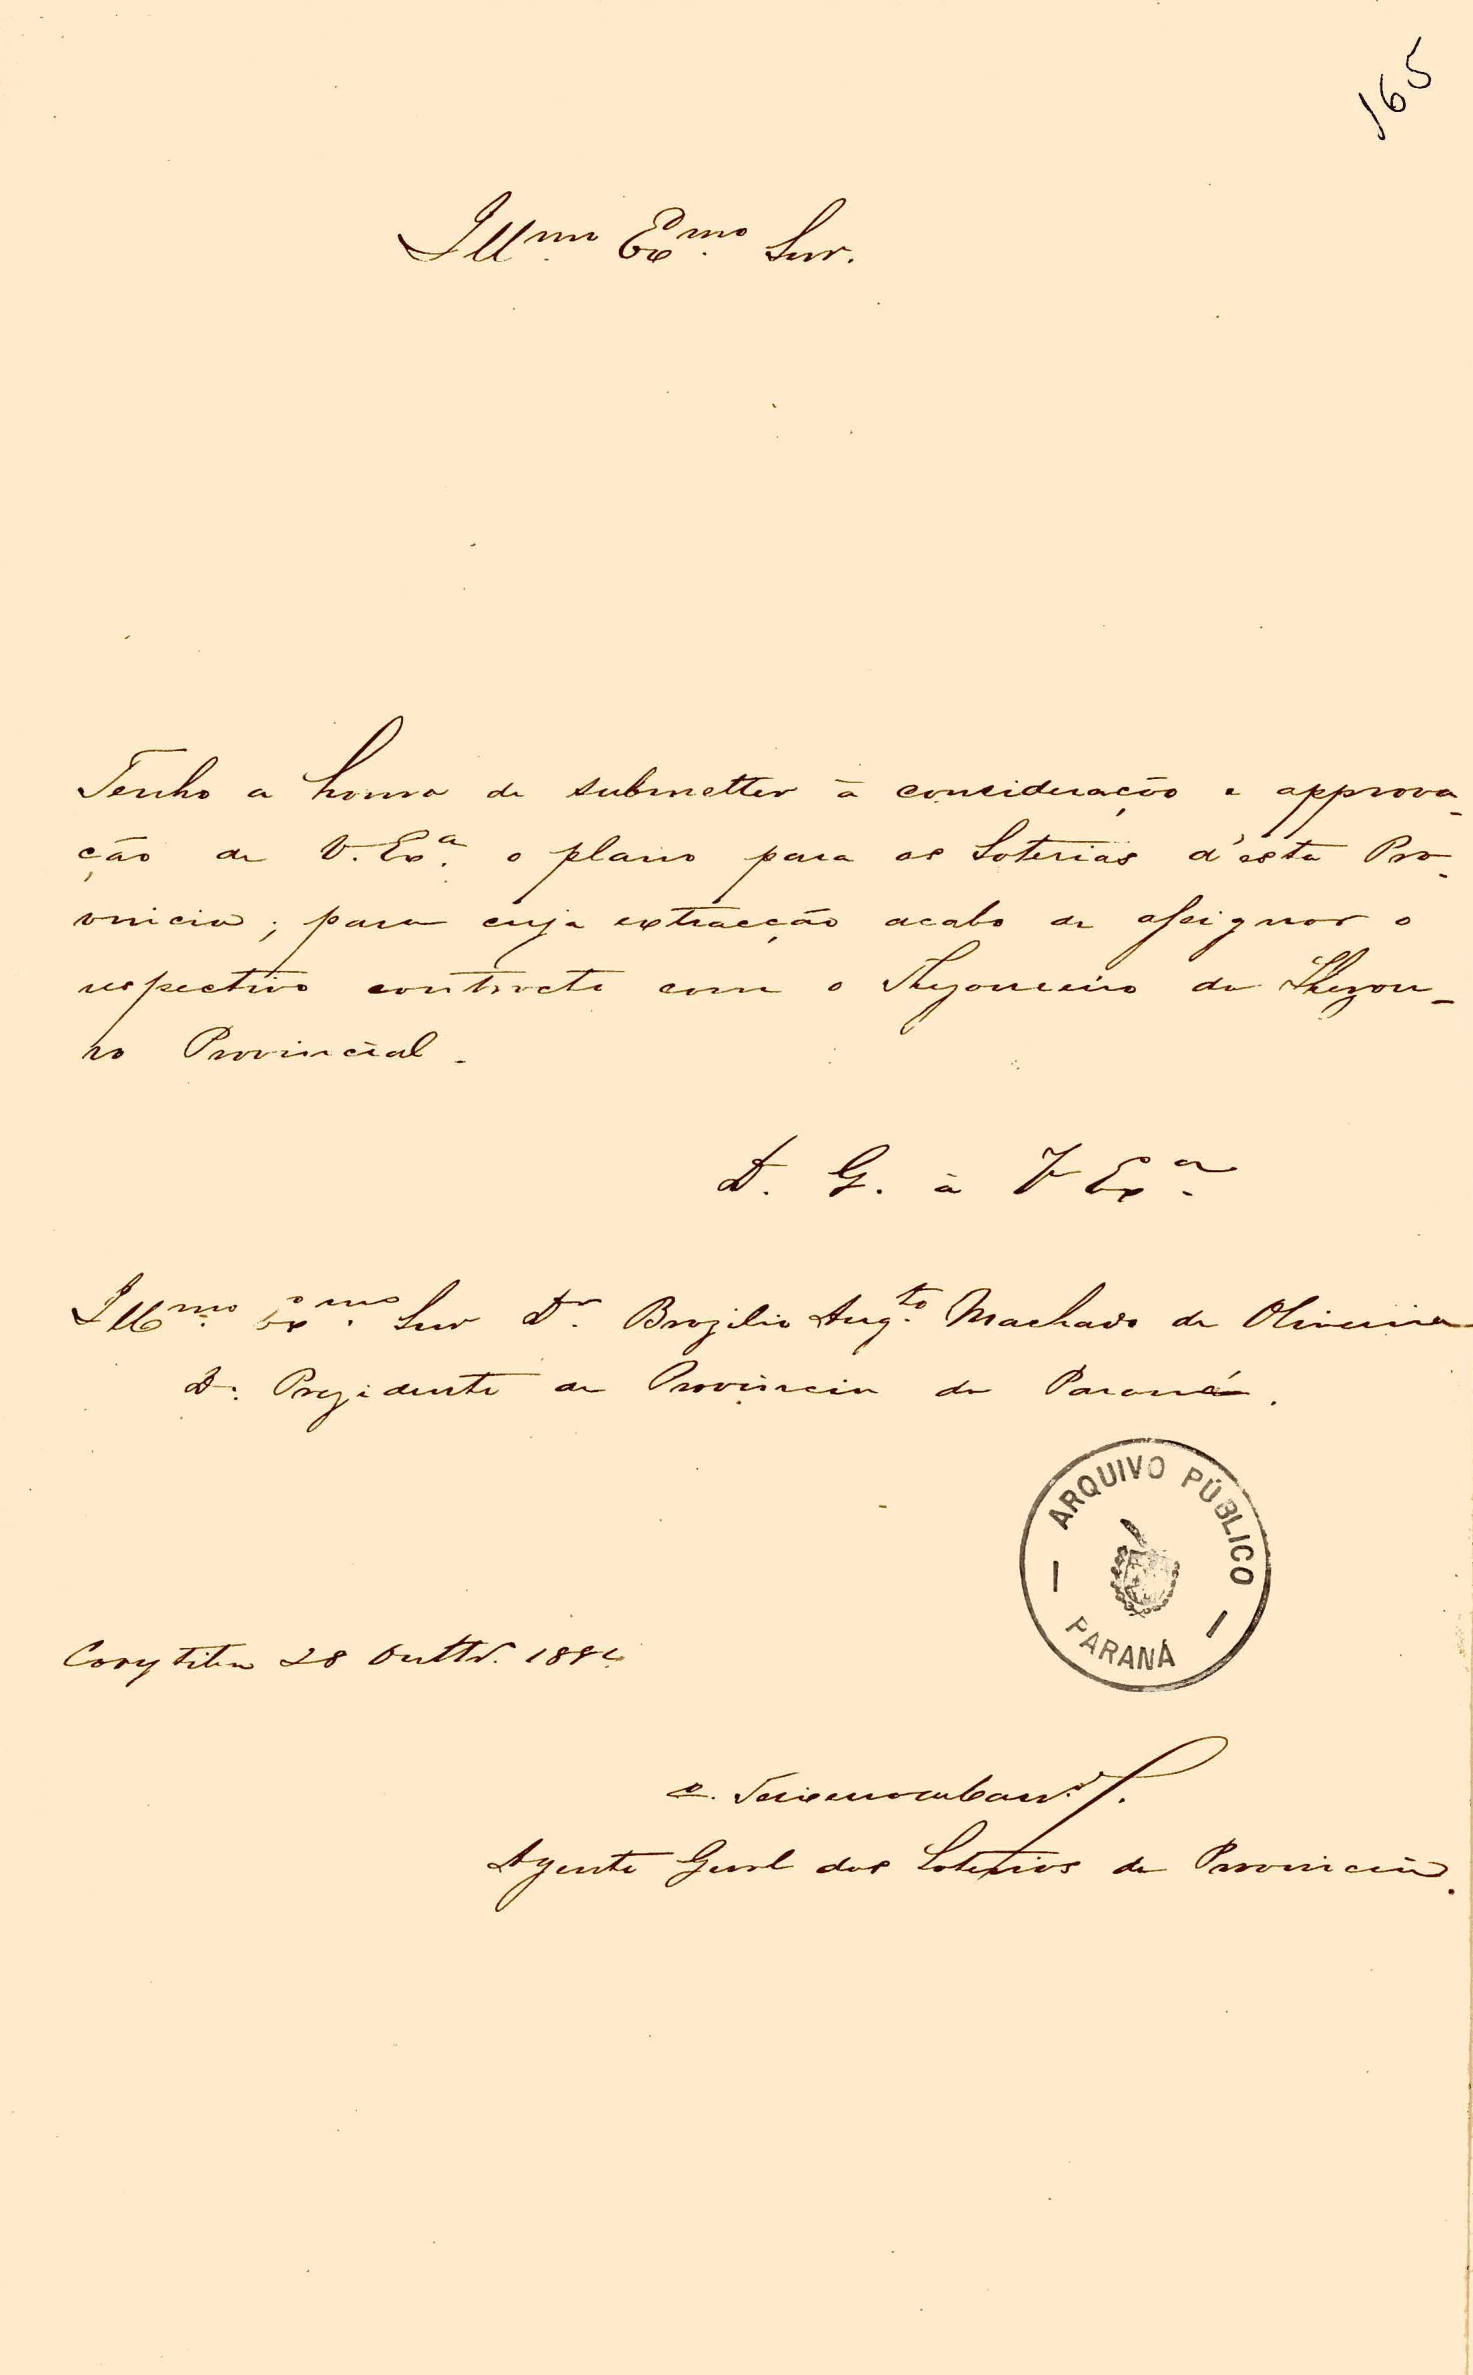 165
Illmo Exmo Snr.
Tenho a honra de submetter á consideração e approva-
ção de V. Exa. o plano para as Loterias d'esta Pro-
vincia; para cuja extracção acabo de assignar o
respectivo contracto com o Thezoureiro do Thezou-
ro Provincial.
D. G. a V Exa.
Illmo. Exmo. Snr Dr. Brazilio Augto. Machado de Oliveira
D. Prezidente da Provincia do Paraná.
ARQUIVO PÚBLICO
PARANÁ
Corytiba 28 Outbr. 1884
Agente Geral das Loterias da Provincia.